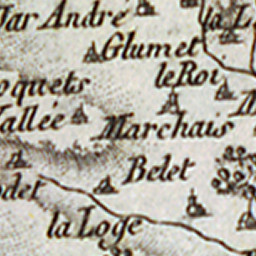 Jar André
la L
Glumet
le Roi
oquets
Vallée
Marchais
Belet
odet
la Loge